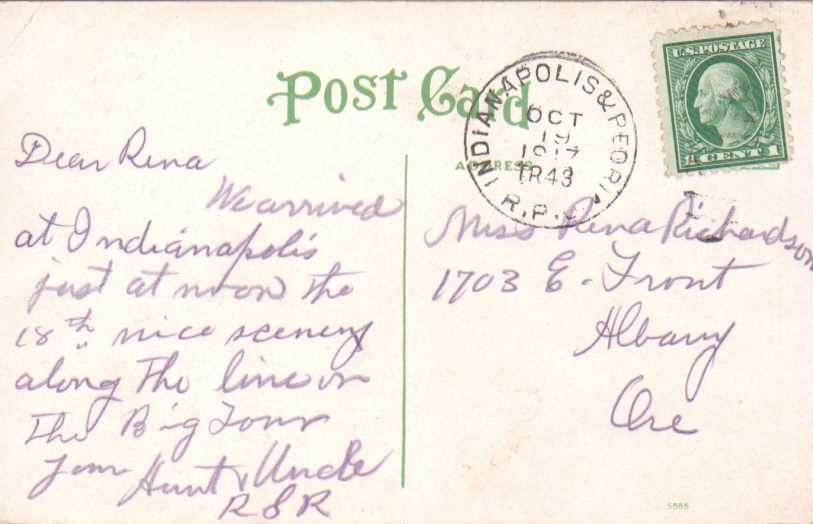 Post Card
ADDRESS
INDIANAPOLIS & PEORI
OCT
19
1917
TR43
R.P.O.
U.S. POSTAGE
1 CENT 1
Dear Rena
We arrived
at Indianapolis
just at noon the
18th nice scenery
along the line on
The Big Four
your Aunt & Uncle
R S R
Miss Rena Richardson
1703 E. Front
Albany
Ore
5565